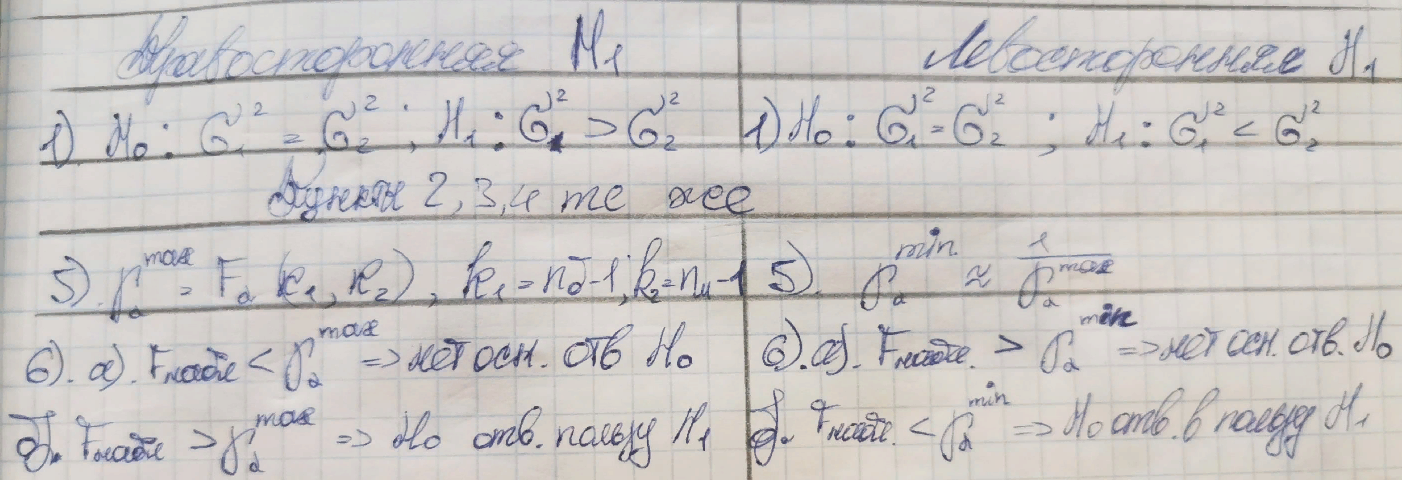 Правосторонняя H₁
Левосторонняя H₁
1) H₀: σ₁² = σ₂²; H₁: σ₁² > σ₂²
1) H₀: σ₁² = σ₂²; H₁: σ₁² < σ₂²
Пункты 2, 3, 4 те же
5). γ_α^max = F_α (k₁, k₂), k₁ = n_б-1; k₂ = n_м-1
5). γ_α^min ≈ 1/γ_α^max
6). а). Fнабл < γ_α^max => нет осн. отв H₀
6). а). Fнабл. > γ_α^min => нет осн. отв. H₀
б). Fнабл > γ_α^max => H₀ отв. пользу H₁
б). Fнабл. < γ_α^min => H₀ отв. в пользу H₁